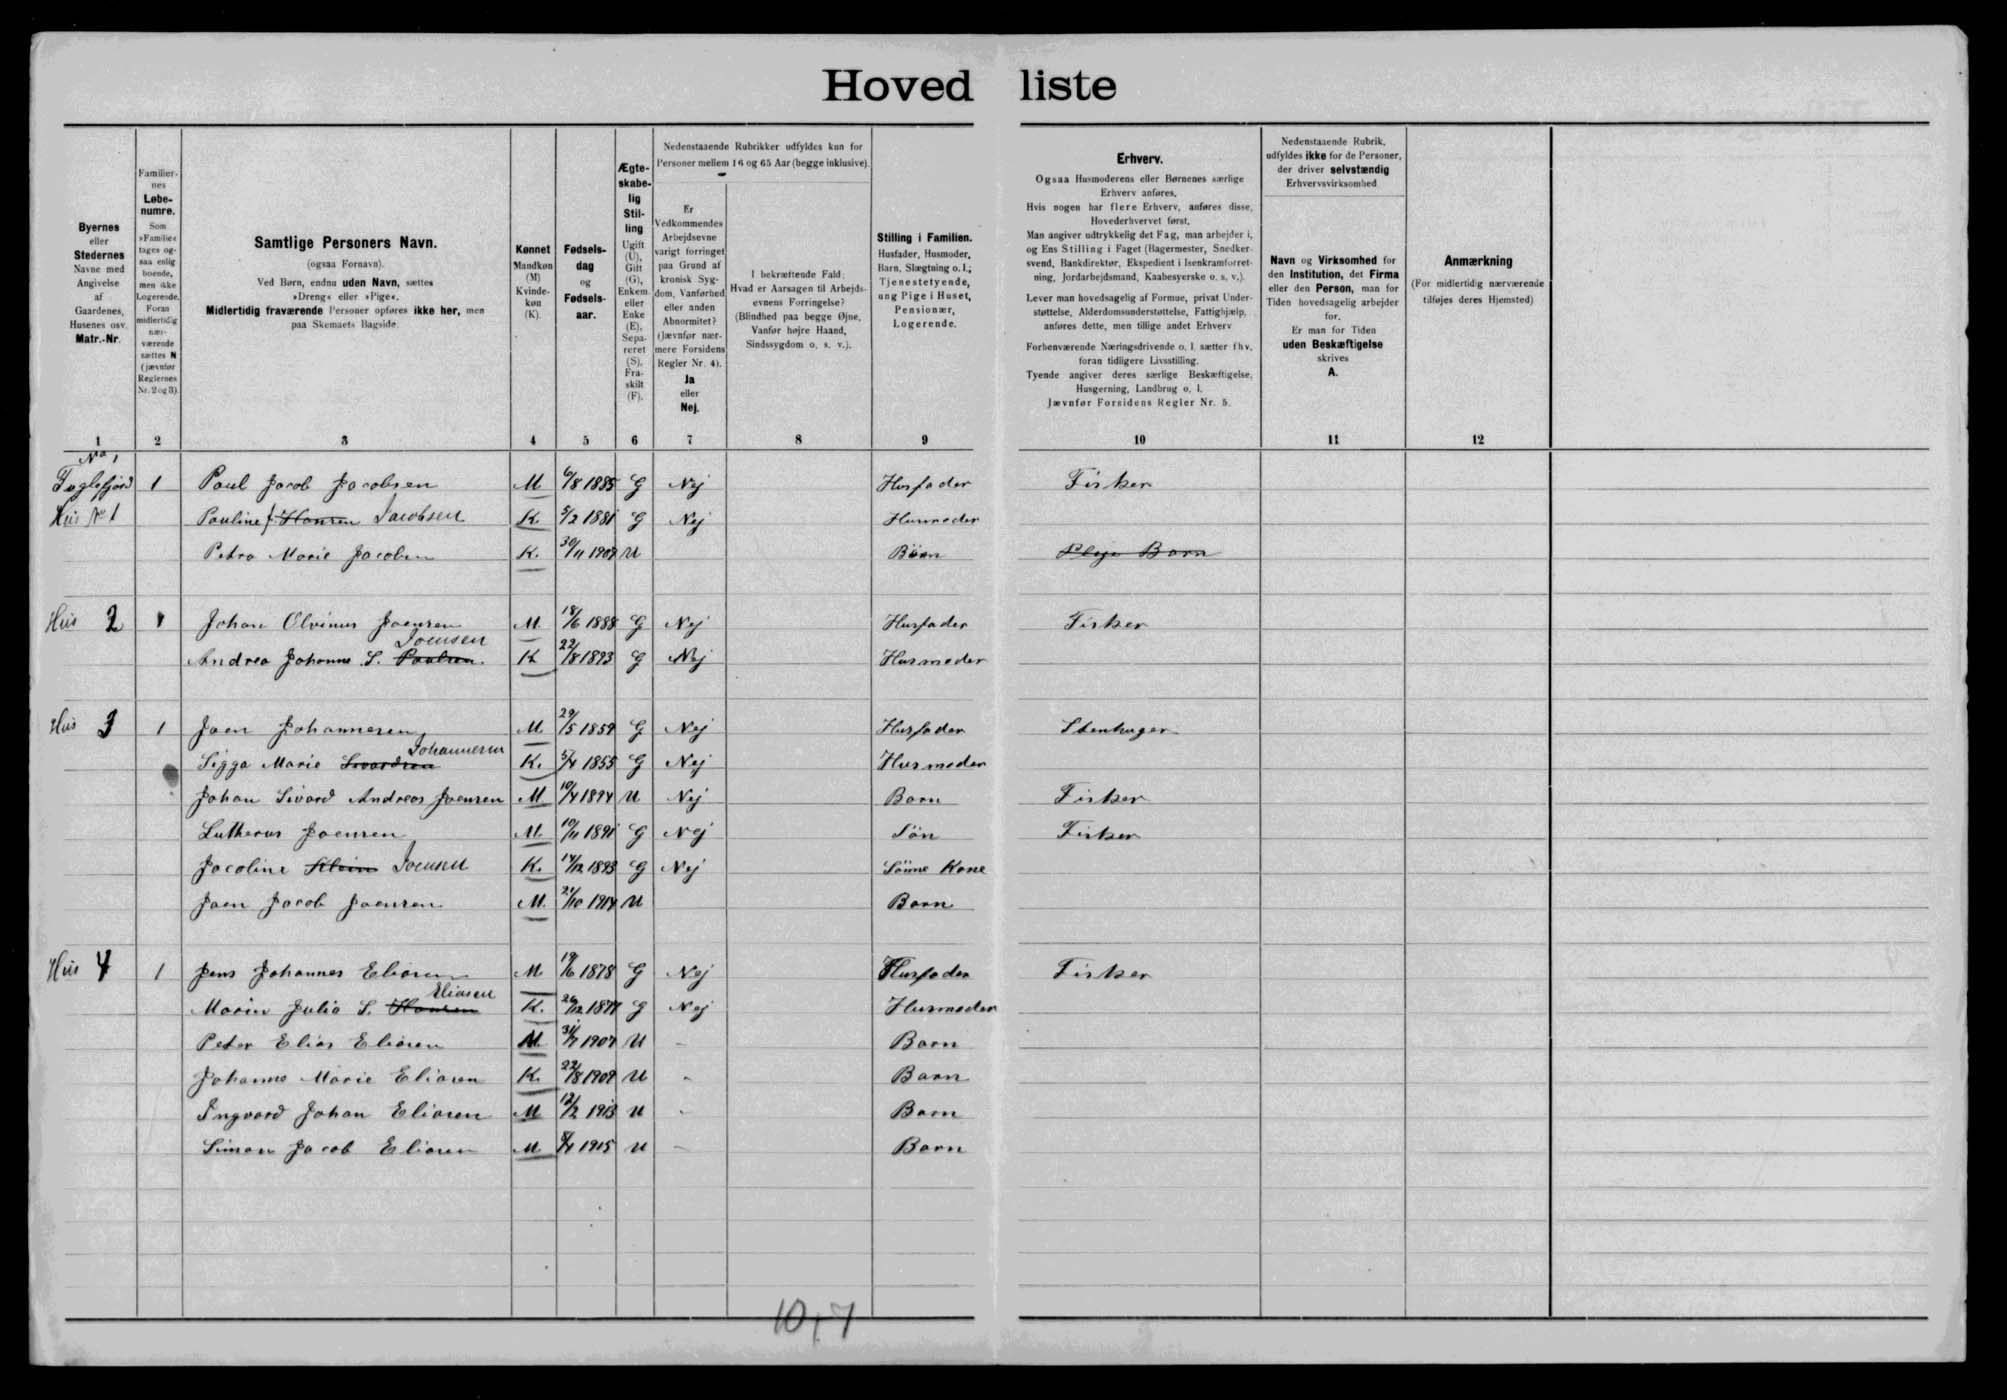 Hoved liste
Byernes
eller
Stedernes
Navne med
Angivelse
af
Gaardenes,
Husenes osv.
Matr.-Nr.
Familier-
nes
Løbe-
numre.
Som
»Familie«
tages og-
saa enlig
boende,
men ikke
Logerende.
Foran
midlertidig
nær-
værende
sættes N
(jævnfør
Reglernes
Nr. 2 og 3).
Samtlige Personers Navn.
(ogsaa Fornavn).
Ved Børn, endnu uden Navn, sættes
»Dreng« eller »Pige«.
Midlertidig fraværende Personer opføres ikke her, men
paa Skemaets Bagside.
Kønnet
Mandkøn
(M)
Kvinde-
køn
(K).
Fødsels-
dag
og
Fødsels-
aar.
Ægte-
skabe-
lig
Stil-
ling
Ugift
(U),
Gift
(G),
Enkem.
eller
Enke
(E),
Sepa-
reret
(S),
Fra-
skilt
(F).
Nedenstaaende Rubrikker udfyldes kun for
Personer mellem 16 og 65 Aar (begge inklusive).
Er
Vedkommendes
Arbejdsevne
varigt forringet
paa Grund af
kronisk Syg-
dom, Vanførhed
eller anden
Abnormitet?
(Jævnfør nær-
mere Forsidens
Regler Nr. 4).
Ja
eller
Nej.
I bekræftende Fald:
Hvad er Aarsagen til Arbejds-
evnens Forringelse?
(Blindhed paa begge Øjne,
Vanfør højre Haand,
Sindssygdom o. s. v.).
Stilling i Familien.
Husfader, Husmoder,
Barn, Slægtning o. l.;
Tjenestetyende,
ung Pige i Huset,
Pensionær,
Logerende.
Erhverv.
Ogsaa Husmoderens eller Børnenes særlige
Erhverv anføres,
Hvis nogen har flere Erhverv, anføres disse,
Hovederhvervet først,
Man angiver udtrykkelig det Fag, man arbejder i,
og Ens Stilling i Faget (Bagermester, Snedker-
svend, Bankdirektør, Ekspedient i Isenkramforret-
ning, Jordarbejdsmand, Kaabesyerske o. s. v.).
Lever man hovedsagelig af Formue, privat Under-
støttelse, Alderdomsunderstøttelse, Fattighjælp,
anføres dette, men tillige andet Erhverv
Forhenværende Næringsdrivende o. l. sætter fhv.
foran tidligere Livsstilling.
Tyende angiver deres særlige Beskæftigelse,
Husgerning, Landbrug o. l.
Jævnfør Forsidens Regler Nr. 5.
Nedenstaaende Rubrik,
udfyldes ikke for de Personer,
der driver selvstændig
Erhvervsvirksomhed
Navn og Virksomhed for
den Institution, det Firma
eller den Person, man for
Tiden hovedsagelig arbejder
for.
Er man for Tiden
uden Beskæftigelse
skrives
A.
Anmærkning
(For midlertidig nærværende
tilføjes deres Hjemsted)
1 2 3 4 5 6 7 8 9 10 11 12
No 1
Fuglefjord 1 Paul Jacob Jacobsen M 6/8 1885 G Nej Husfader Fisker
Hus No 1 Pauline J. Hansen Jacobsen K. 5/2 1881 G Nej Husmoder
Petra Marie Jacobsen K. 30/11 1909 U Barn Pleje Barn
Hus 2 1 Johan Elvinus Joensen M. 18/6 1888 G Nej Husfader Fisker
Joensen
Andrea Johanne S. Poulsen K 22/8 1893 G Nej Husmoder
Hus 3 1 Joen Johannesen M 29/5 1859 G Nej Husfader Stenhuger
Johannesen
Sigga Marie Sivardsen K. 5/4 1855 G Nej Husmoder
Johan Sivard Andreas Joensen M 10/4 1894 U Nej Barn Fisker
Lutherus Joensen M. 10/11 1891 G Nej Søn Fisker
Jacoline Klein Joensen K. 14/12 1893 G Nej Sönne Kone
Joen Jacob Joensen M. 21/10 1914 U Barn
Hus 4 1 Jens Johannes Eliasen M 19/6 1878 G Nej Husfader Fisker
Eliasen
Maria Julia S. Hansen K. 26/12 1877 G Nej Husmoder
Peter Elias Eliasen M. 31/7 1907 U - Barn
Johanne Marie Eliasen K. 22/8 1909 U - Barn
Ingvard Johan Eliasen M 12/2 1913 U - Barn
Simon Jacob Eliasen M 8/4 1915 U - Barn
10,7